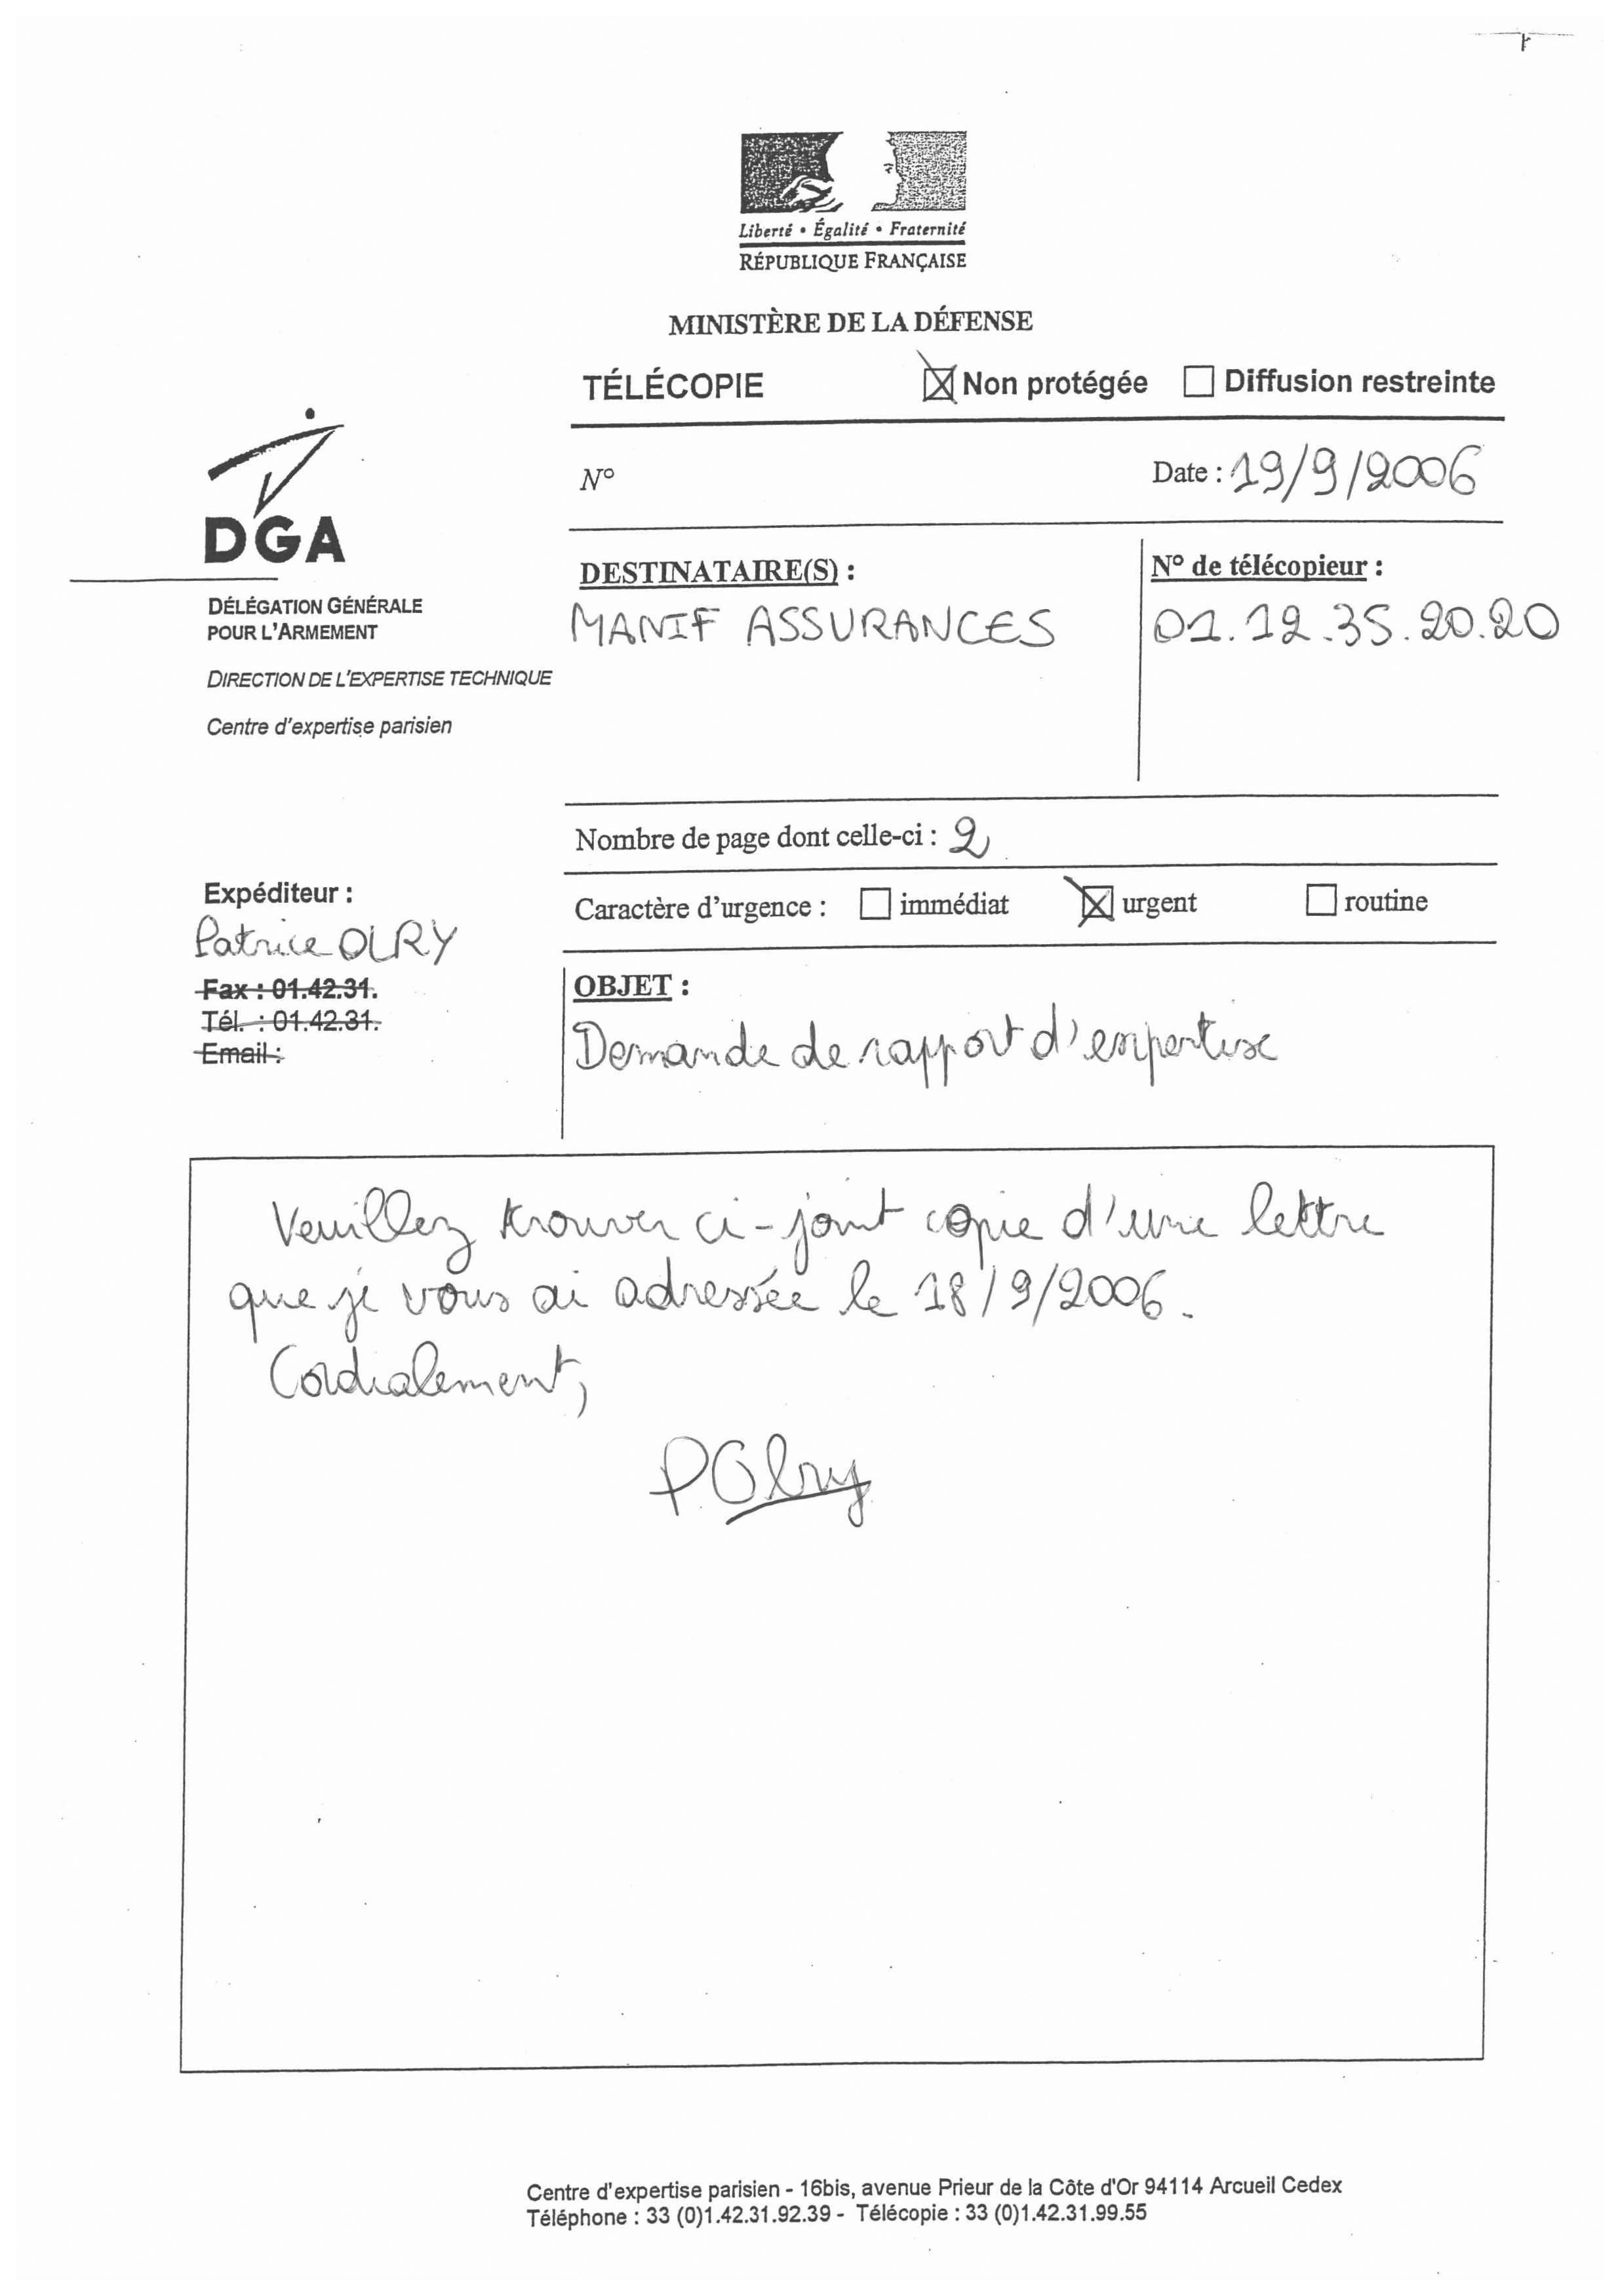 Liberté • Égalité • Fraternité
RÉPUBLIQUE FRANÇAISE
MINISTÈRE DE LA DÉFENSE
TÉLÉCOPIE ☒ Non protégée ☐ Diffusion restreinte
DGA
N° Date : 19/9/2006
DÉLÉGATION GÉNÉRALE
POUR L'ARMEMENT
DIRECTION DE L'EXPERTISE TECHNIQUE
Centre d'expertise parisien
DESTINATAIRE(S) : N° de télécopieur :
MANIF ASSURANCES 01.12.35.20.20
Nombre de page dont celle-ci : 2
Caractère d'urgence : ☐ immédiat ☒ urgent ☐ routine
Expéditeur :
Patrice OLRY
Fax : 01.42.31.
Tél. : 01.42.31.
Email :
OBJET :
Demande de rapport d'expertise
Veuillez trouver ci-joint copie d'une lettre
que je vous ai adressée le 18/9/2006.
Cordialement,
POlry
Centre d'expertise parisien - 16bis, avenue Prieur de la Côte d'Or 94114 Arcueil Cedex
Téléphone : 33 (0)1.42.31.92.39 - Télécopie : 33 (0)1.42.31.99.55